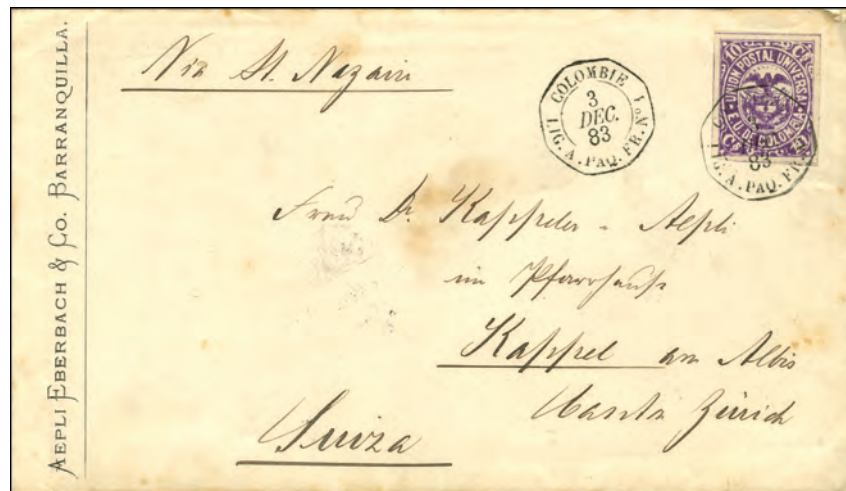 AEPLI EBERBACH & CO. BARRANQUILLA.
Via St. Nazaire
COLOMBIE
3
DEC.
83
LIG. A. PAQ. FR. No 1
10 Cs
UNION POSTAL UNIVERSAL
E.U. DE COLOMBIA
83
LIG. A. PAQ. FR.
Frau Dr. Kappeler - Aepli
im Pfarrhause
Kappel am Albis
Canton Zürich
Suiza